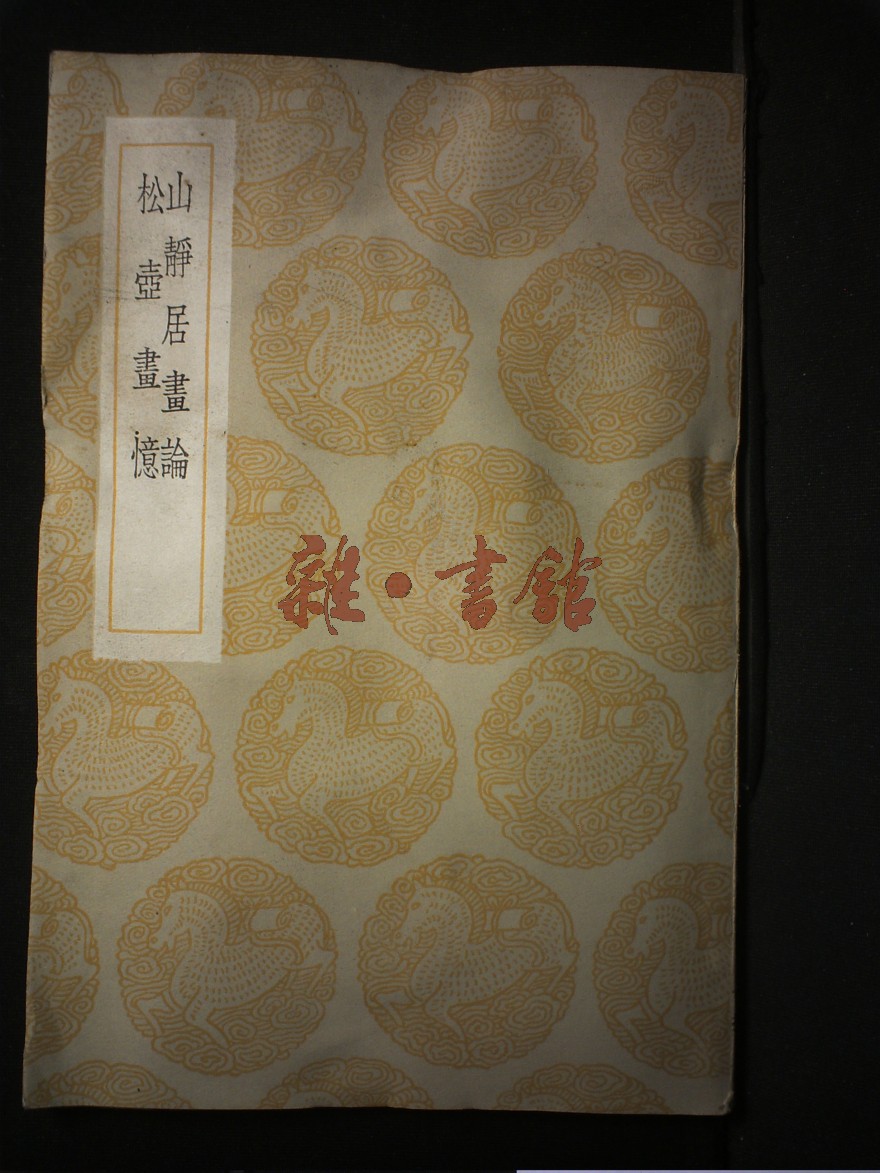 山靜居畫論
松壺畫憶
雜·書館